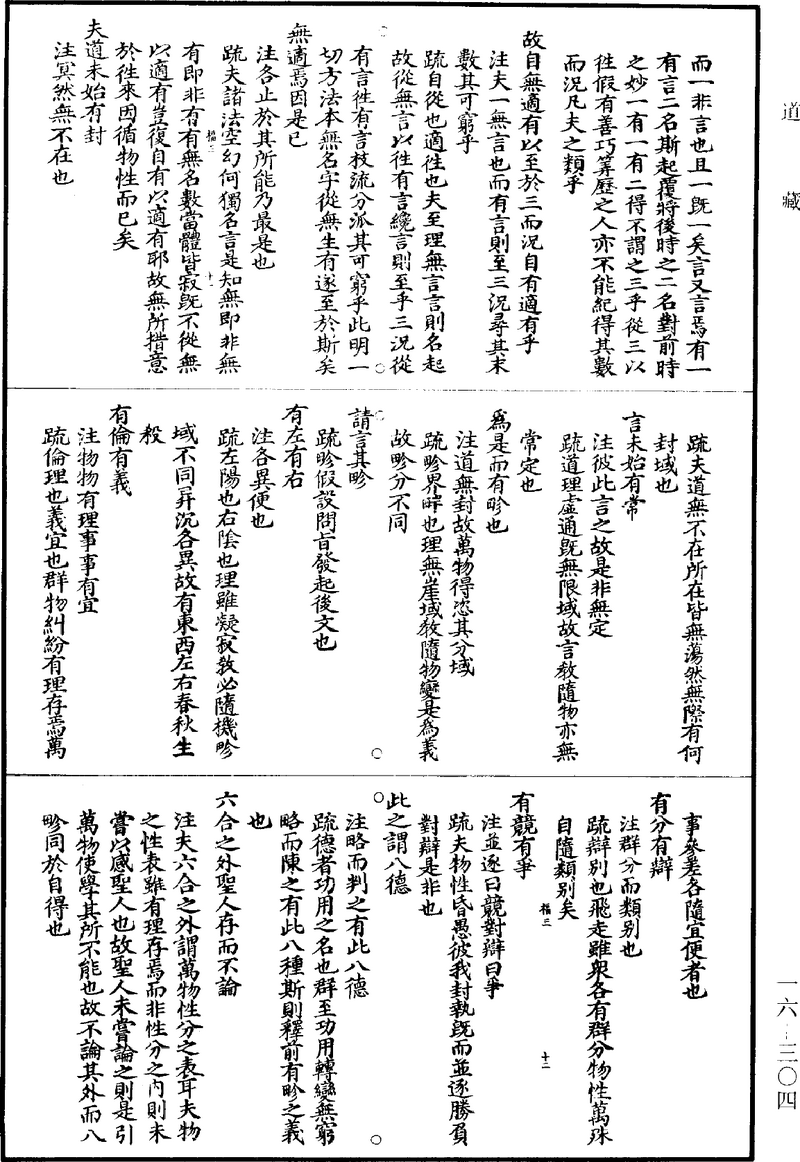 道藏
而一非言也且一既一矣言又言焉有一
有言二名斯起覆將後時之二名對前時
之妙一有一有二得不謂之三乎從三以
徃假有善巧筭歷之人亦不能紀得其數
而況凡夫之類乎
故自無適有以至於三而況自有適有乎
注夫一無言也而有言則至三況尋其末
數其可窮乎
疏自從也適徃也夫至理無言言則名起
故從無言以徃有言纔言則至乎三況從
有言徃有言枝流分派其可窮乎此明一
切方法本無名字從無生有遂至於斯矣
無適焉因是已
注各止於其所能乃最是也
疏夫諸法空幻何獨名言是知無即非無
有即非有有無名數當體皆寂既不從無
福三
十一
以適有豈復自有以適有耶故無所措意
於徃來因循物性而已矣
夫道未始有封
注冥然無不在也
疏夫道無不在所在皆無蕩然無際有何
封域也
言未始有常
注彼此言之故是非無定
疏道理虛通既無限域故言教隨物亦無
常定也
為是而有畛也
注道無封故萬物得恣其分域
疏畛界畔也理無崖域教隨物變是為義
故畛分不同
請言其畛
疏畛假設問旨發起後文也
有左有右
注各異便也
疏左陽也右陰也理雖凝寂教必隨機畛
域不同昇沉各異故有東西左右春秋生
殺
有倫有義
注物物有理事事有宜
疏倫理也義宜也群物糾紛有理存焉萬
事參差各隨宜便者也
有分有辯
注群分而類別也
疏辯別也飛走雖眾各有群分物性萬殊
自隨類別矣
福三
十二
有競有爭
注並逐曰競對辯曰爭
疏夫物性昏愚彼我封執既而並逐勝負
對辯是非也
此之謂八德
注略而判之有此八德
疏德者功用之名也群至功用轉變無窮
略而陳之有此八種斯則釋前有畛之義
也
六合之外聖人存而不論
注夫六合之外謂萬物性分之表耳夫物
之性表雖有理存焉而非性分之內則未
嘗以感聖人也故聖人未嘗論之則是引
萬物使學其所不能也故不論其外而八
畛同於自得也
一六-三〇四